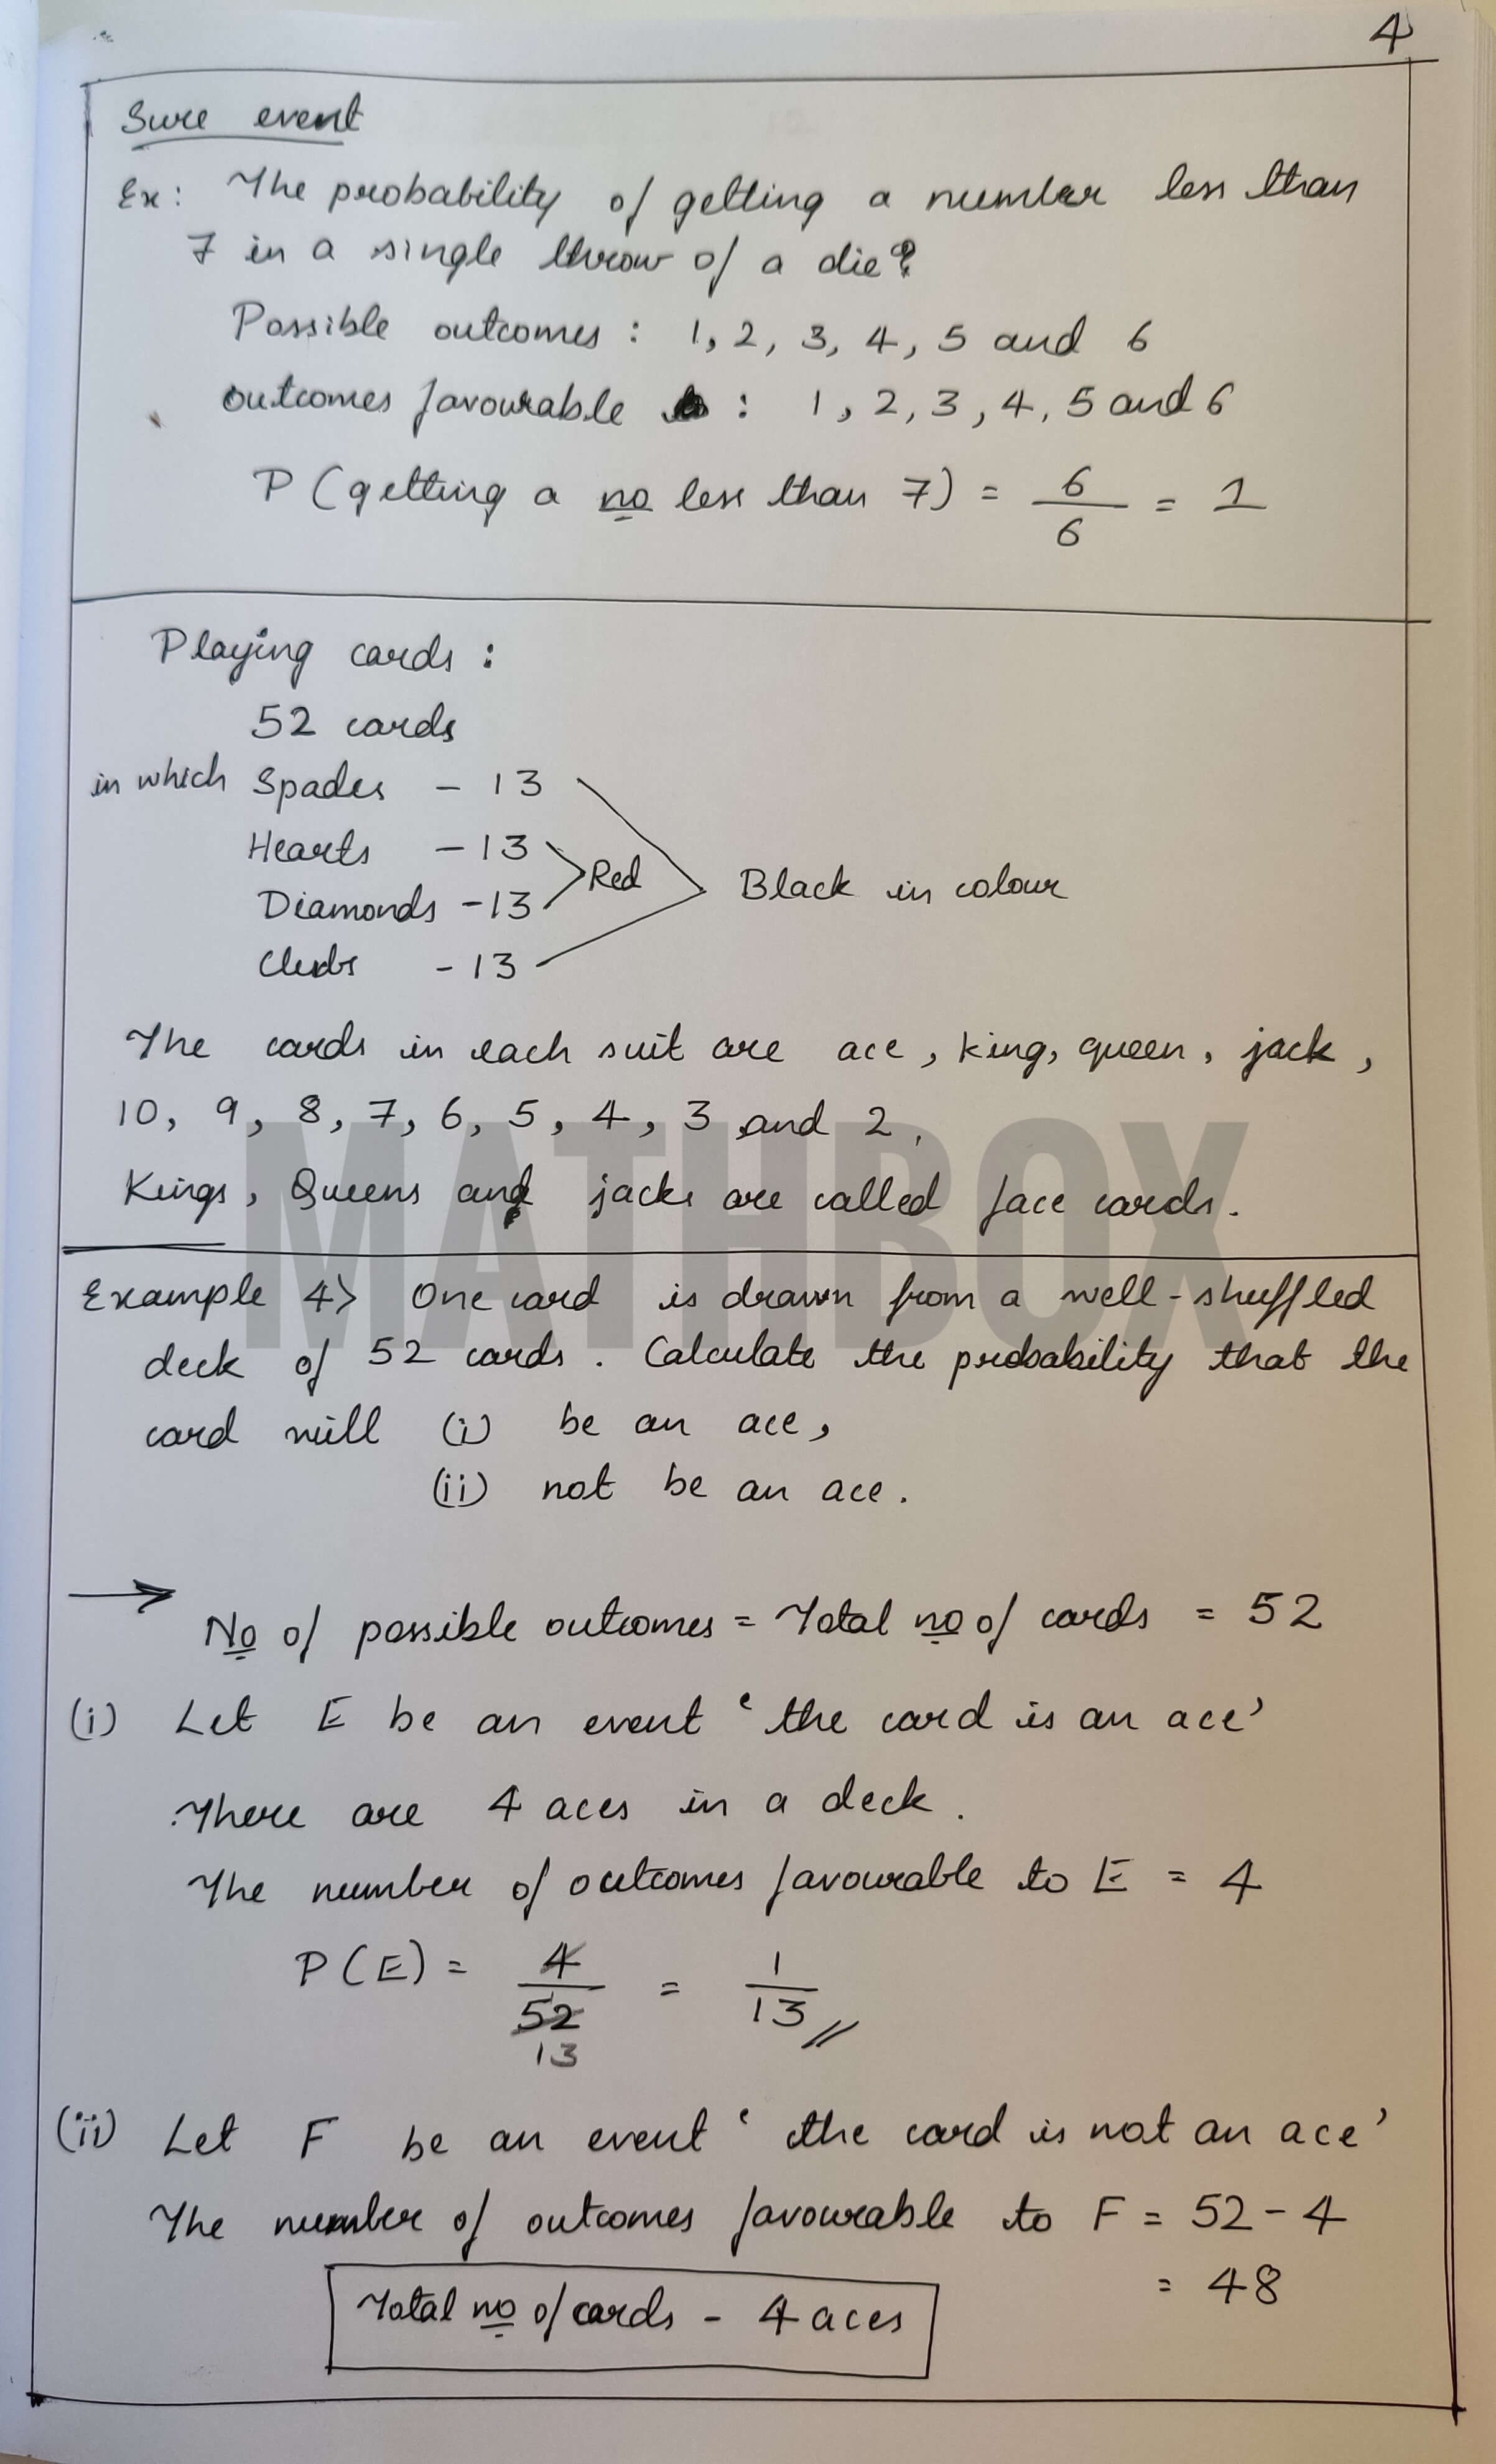 4
Sure event
Ex: The probability of getting a number less than
7 in a single throw of a die?
Possible outcomes : 1, 2, 3, 4, 5 and 6
outcomes favourable : 1, 2, 3, 4, 5 and 6
P (getting a no less than 7) = 6/6 = 1
Playing cards :
52 cards
in which Spades - 13
Hearts - 13
Red
Black in colour
Diamonds - 13
Clubs - 13
The cards in each suit are ace, king, queen, jack,
10, 9, 8, 7, 6, 5, 4, 3 and 2.
Kings, Queens and jacks are called face cards.
MATHBOX
Example 4> One card is drawn from a well-shuffled
deck of 52 cards. Calculate the probability that the
card will (i) be an ace,
(ii) not be an ace.
→
No of possible outcomes = Total no of cards = 52
(i) Let E be an event ‘the card is an ace’
There are 4 aces in a deck.
The number of outcomes favourable to E = 4
P(E) = 4/52 = 1/13 //
13
(ii) Let F be an event ‘the card is not an ace’
The number of outcomes favourable to F = 52 - 4
= 48
Total no of cards - 4 aces